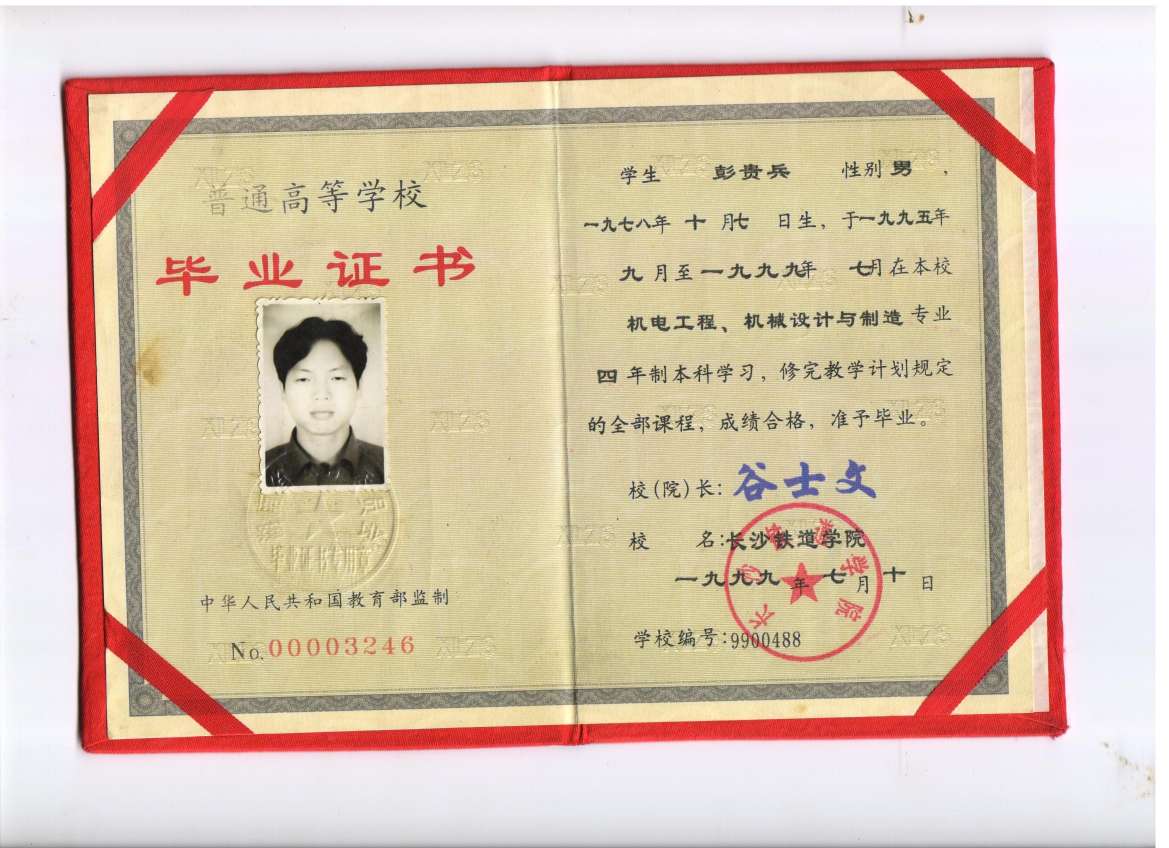 普通高等学校
毕业证书
毕业证书专用章
中华人民共和国教育部监制
No.00003246
学生 彭贵兵 性别 男 ，
一九七八年 十 月七 日生，于一九九五年
九 月至 一九九九年 七月在本校
机电工程、机械设计与制造 专业
四 年制本科学习，修完教学计划规定
的全部课程，成绩合格，准予毕业。
校(院)长: 谷士文
校 名:长沙铁道学院
一九九九 年 七 月 十 日
学校编号:9900488
长沙铁道学院